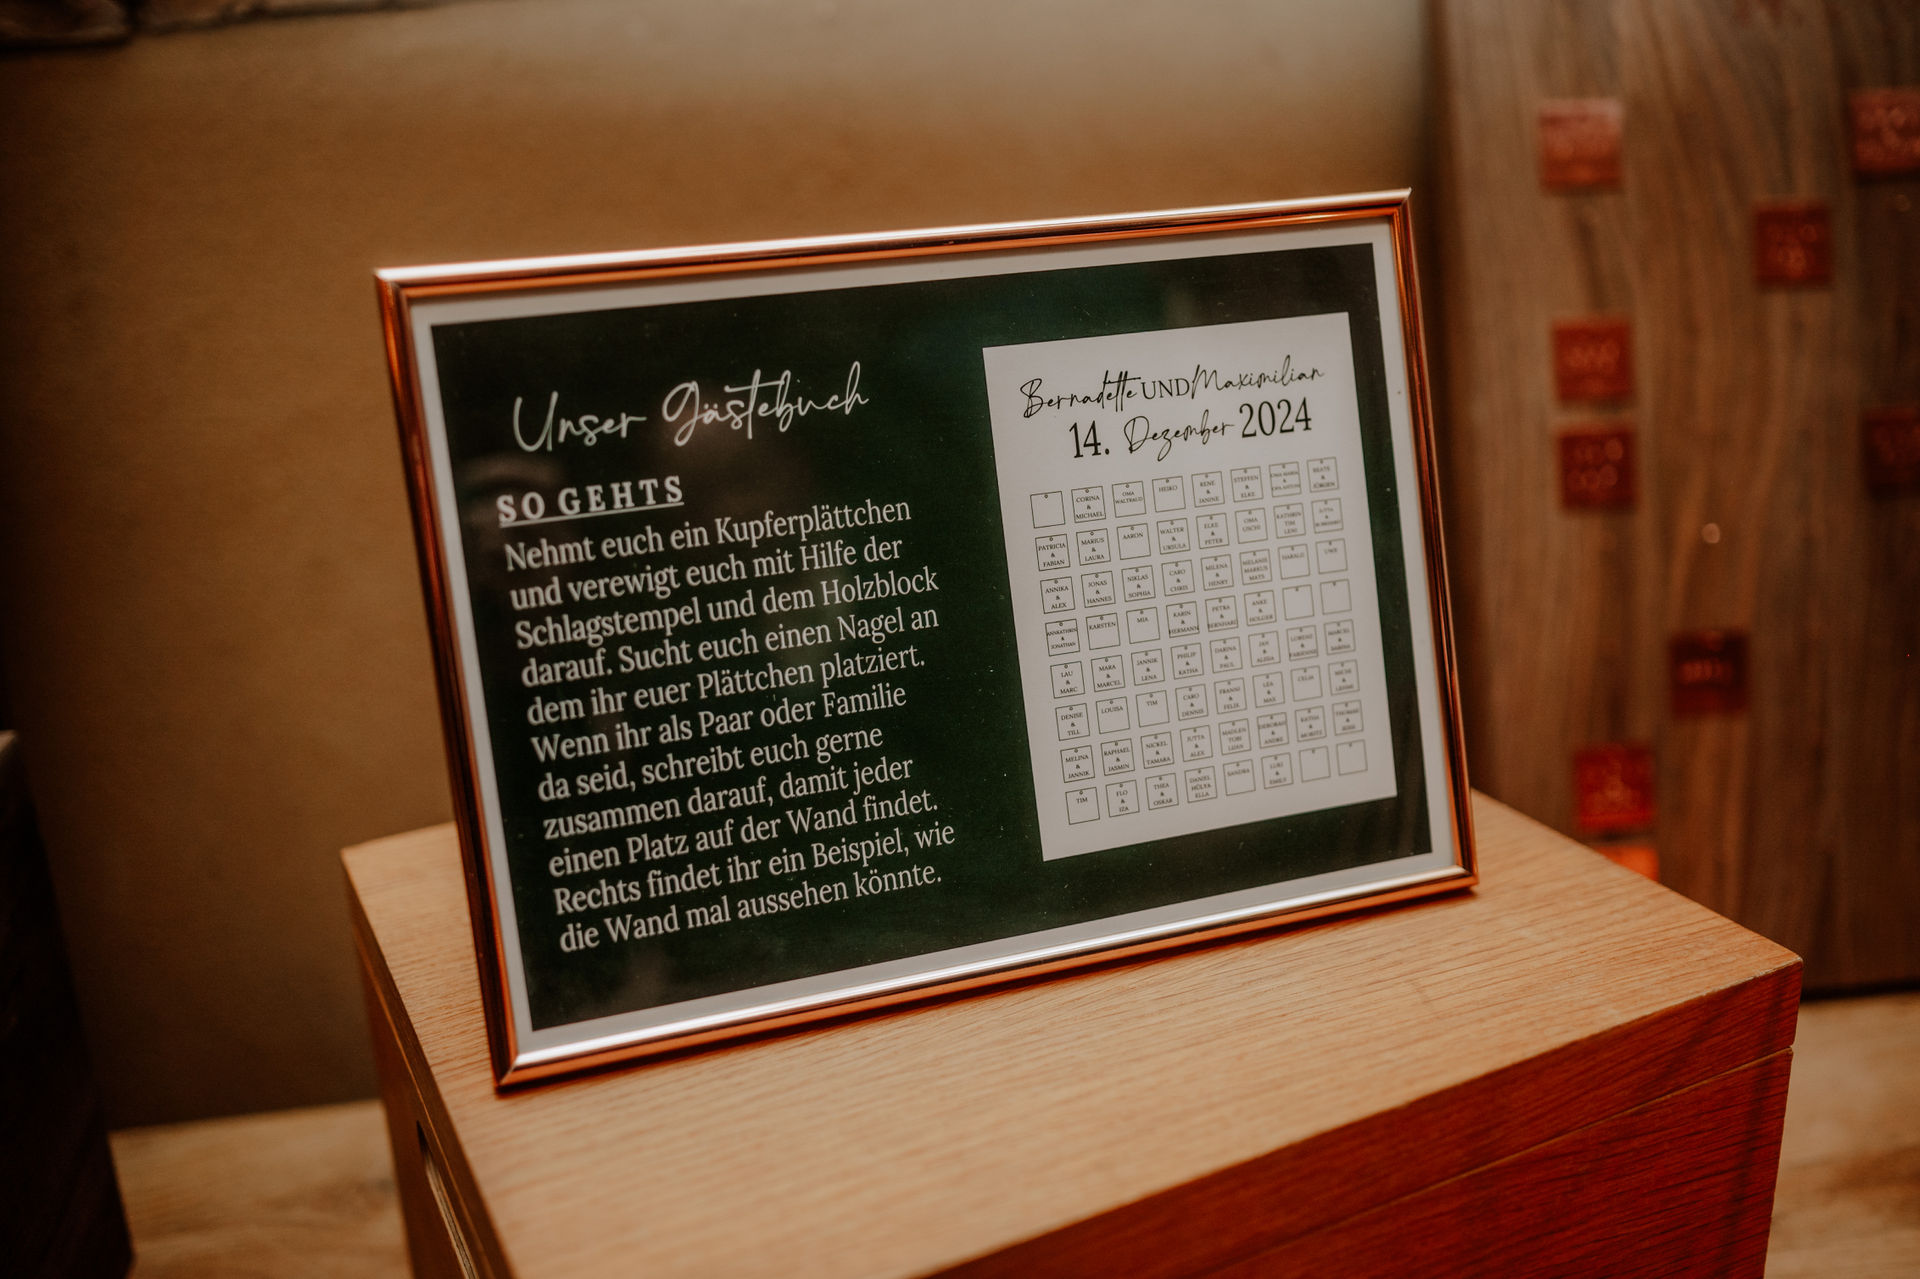 Unser Gästebuch
SO GEHTS
Nehmt euch ein Kupferplättchen
und verewigt euch mit Hilfe der
Schlagstempel und dem Holzblock
darauf. Sucht euch einen Nagel an
dem ihr euer Plättchen platziert.
Wenn ihr als Paar oder Familie
da seid, schreibt euch gerne
zusammen darauf, damit jeder
einen Platz auf der Wand findet.
Rechts findet ihr ein Beispiel, wie
die Wand mal aussehen könnte.
Bernadette UND Maximilian
14. Dezember 2024
CORINA
&
MICHAEL
OMA
WALTRAUD
HEIKO
RENE
&
JANINE
STEFFEN
&
ELKE
BEATE
&
JÜRGEN
PATRICIA
&
FABIAN
MARIUS
&
LAURA
AARON
WALTER
&
URSULA
ELKE
&
PETER
OMA
USCHI
KATHRIN
TIM
LENI
JUTTA
&
ANNIKA
&
ALEX
JONAS
&
HANNES
NIKLAS
&
SOPHIA
CARO
&
CHRIS
MILENA
&
HENRY
MELANIE
MARKUS
MATS
HARALD
UWE
ANNKATHRIN
&
JONATHAN
KARSTEN
MIA
KARIN
&
HERMANN
PETRA
&
BERNHARD
ANKE
&
HOLGER
LAU
&
MARC
MARA
&
MARCEL
JANNIK
&
LENA
PHILIP
&
KATHA
DARINA
&
PAUL
JAN
&
ALISIA
LORENZ
&
FABIENNE
MARCEL
&
SABRINA
DENISE
&
TILL
LOUISA
TIM
CARO
&
DENNIS
FRANSI
&
FELIX
LEA
&
MAX
CELIA
MICHI
&
MELINA
&
JANNIK
RAPHAEL
&
JASMIN
NICKEL
&
TAMARA
JUTTA
&
ALEX
MADLEN
TOBI
LUAN
DEBORAH
&
ANDRE
KATHA
&
MORITZ
THOMAS
&
TIM
FLO
&
IZA
THEA
&
OSKAR
DANIEL
HÜLYA
ELLA
SANDRA
LUKI
&
EMILY